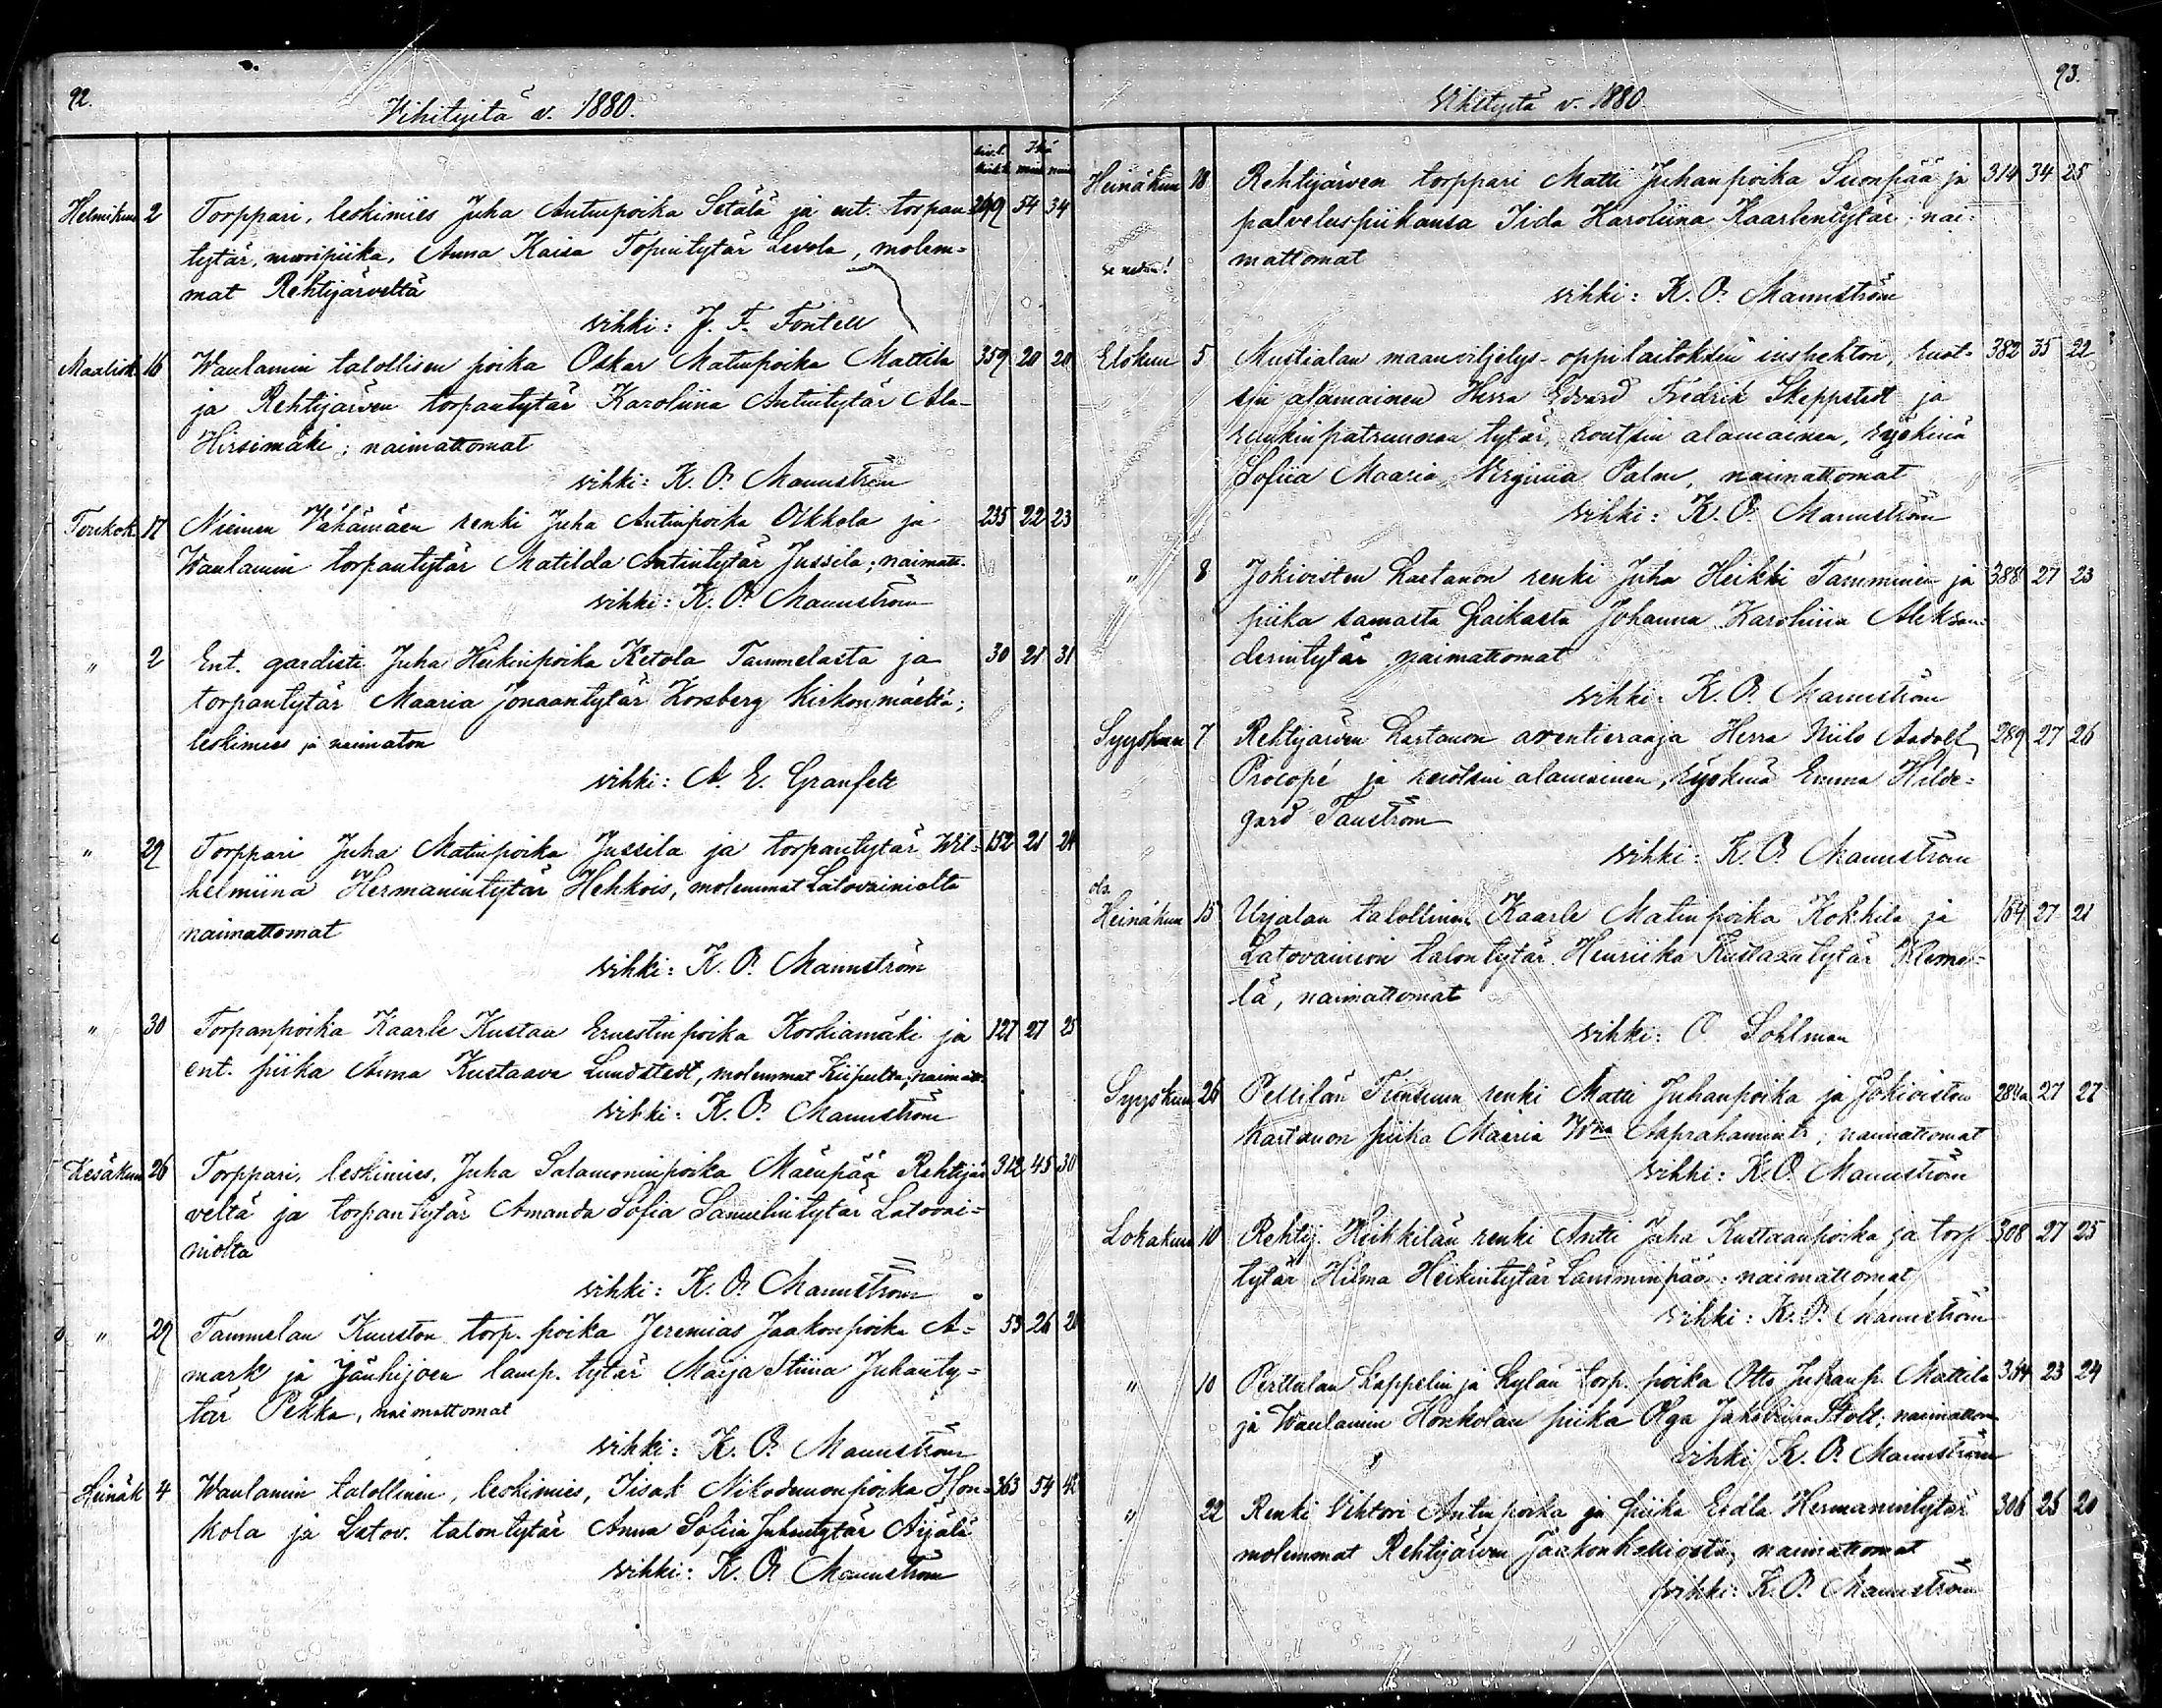 92.
Vihityitä v. 1880.
Ikä
Helmikuu 2 Torppari, leskimies Juha Antinpoika Setälä ja ent. torpan 54 34
tytär, Anna Kaisa Topiintytär Levola, molem-
mat Rehtijärveltä
vihki: J. F. Fontell
Maalisk 16 Waulamin talollisen poika Oskar Matinpoika Mattila 359 20 20
ja Rehtijärven torpantytär Karoliina Antintytär Ala-
Hirsimäki; naimattomat
vihki: K. O. Mannström
Toukok. 17 Niemen Vähämäen renki Juha Antinpoika Okkola ja 235 22 23
Waulamin torpantytär Matilda Antintytär Jussila; naimatt.
vihki: K. O. Mannström
" 2 Ent. gardisti Juha Heikinpoika Ketola Tammelasta ja 30 21 31
torpantytär Maaria Jonaantytär Korsberg Kirkonmäeltä;
leskimies ja naimaton
vihki: A. E. Granfelt
" 29 Torppari Juha Matinpoika Jussila ja torpantytär Wil- 152 21 24
helmiina Hermanintytär Hehkois, molemmat Latovainiolta
naimattomat
vihki: K. O. Mannström
" 30 Torpanpoika Kaarle Kustaa Ernestinpoika Korkiamäki ja 127 27 25
ent. piika Anna Kustaava Lundstedt, molemmat naimatt.
vihki: K. O. Mannström
Kesäkuu 26 Torppari, leskimies, Juha Salamoninpoika Mäenpää Rehtijär 312 45 30
veltä ja torpantytär Amanda Sofia Samelintytär Latovai-
niolta
vihki: K. O. Mannström
" 29 Tammelan Kuuston torp. poika Jeremias Jaakonpoika A- 53 26
mark ja Jänhijoen lamp. tytär Maija Stiina Juhanty-
tär Pekka, naimattomat
vihki: K. O. Mannström
Heinäk 4 Waulamin talollinen, leskimies, Iisak Nikodemonpoika Hon- 363 54
kola ja Latov. talontytär Anna Sofiia Juhantytär Äijälä
vihki: K. O. Mannström
93.
Vihityitä v. 1880.
Heinäkuu 18 Rehtijärven torppari Matti Juhanpoika Suonpää ja 314 34 25
palveluspiikansa Iida Karoliina Kaarlentytär; nai-
mattomat
vihki: K. O. Mannström
Elokuu 5 Mustialan maanviljelys-oppilaitoksen inspehtori, ruot- 382 35 22
sin alamainen Herra Edvard Fredrik Skeppstedt ja
ruukinpatruunan tytär, routsin alamainen, ryökinä
Sofiia Maaria Virginia Palm, naimattomat
vihki: K. O. Mannström
" 8 Jokioisten kartanon renki Juha Heikki Tamminen ja 388 27 23
piika samasta paikasta Johanna Karoliina Aleksan-
derintytär naimattomat
vihki: K. O. Mannström
Syyskuu 7 Rehtijärven kartanon arentieraaja Herra Niilo Aadolf 289 27 26
Procopé ja ruotsin alamainen, ryökinä Emma Hilde-
gard Tanström
vihki: K. O. Mannström
Heinäkuu 15 Urjalan talollinen Kaarle Matinpoika Kokkila ja 164 27 21
Latovainion talontytär Henriika Kustaantytär Klemet-
lä, naimattomat
vihki: O. Sohlman
Syyskuu 26 Pellilän renki Matti Juhanpoika ja Jokioisten 27 27
kartanon piika Maria Wna Aaprahamintr, naimattomat
vihki: K. O. Mannström
Lokakuu 10 Rehtij. Heikkilän renki Antti Juha Kustaanpoika ja torp 308 27 25
tytär Hilma Heikintytär Lamminpää: naimattomat
vihki: K. O. Mannström
" 10 Perttulan Kappelin ja kylän torp. poika Otto Juhanp. Mattila 23 24
ja Waulamin Honkolan piika Olga Jakobiina Stolt; naimattom
vihki K. O. Mannström
" 22 Renki Vihtori Antinpoika ja piika Eedla Hermanintytär 306 26 20
molemmat Rehtijärven Jaakonkalliosta, naimattomat
vihki: K. O. Mannström